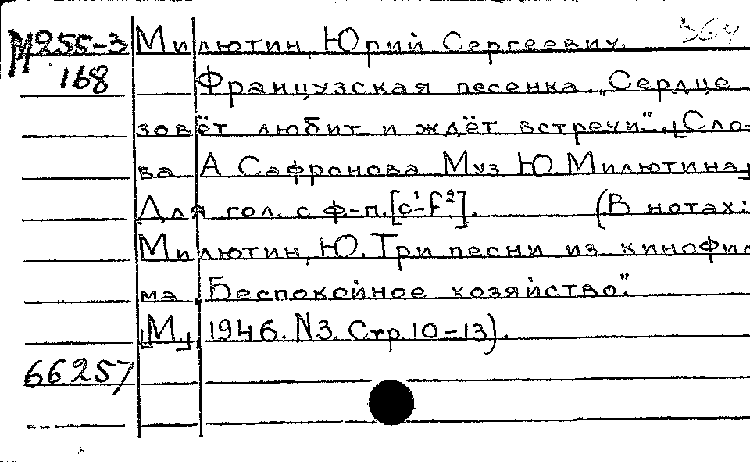 М255-3 Милютин, Юрий Сергеевич. 364
168 Французская песенка „Сердце
зовёт любит и ждёт встречи". [Сло-
ва А Сафронова Муз Ю Милютина]
Для гол. с ф-п. [c¹-f²]. (В нотах:
Милютин, Ю. Три песни из кинофил
ма „Беспокойное хозяйство".
[М.], 1946. N3. Стр. 10-13).
66257